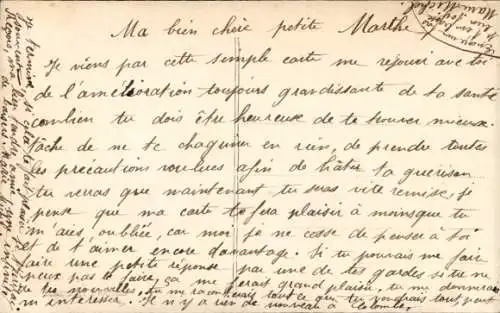 Ma bien chère petite Marthe
Je viens par cette simple carte me rejouir avec toi
de l'amélioration toujours grandissante de ta santé
combien tu dois être heureuse de te trouver mieux.
tâche de ne te chagriner en rien, de prendre toutes
les précautions voulues afin de hâter ta guerison
tu verras que maintenant tu seras vite remise, je
pense que ma carte te fera plaisir à moins que tu
m'aies oubliée, car moi je ne cesse de penser à toi
et de t'aimer encore davantage. Si tu pouvais me faire
faire une petite réponse par une de tes gardes si tu ne
peux pas le faire, ça me ferait grand plaisir, tu me donnerais
de tes nouvelles, tu me raconterais tout ce que tu voudrais tout peut
m'intéresser. Je n'y a rien de nouveau à Colombe
Je termine
Reçois, ma
Marie Michel.